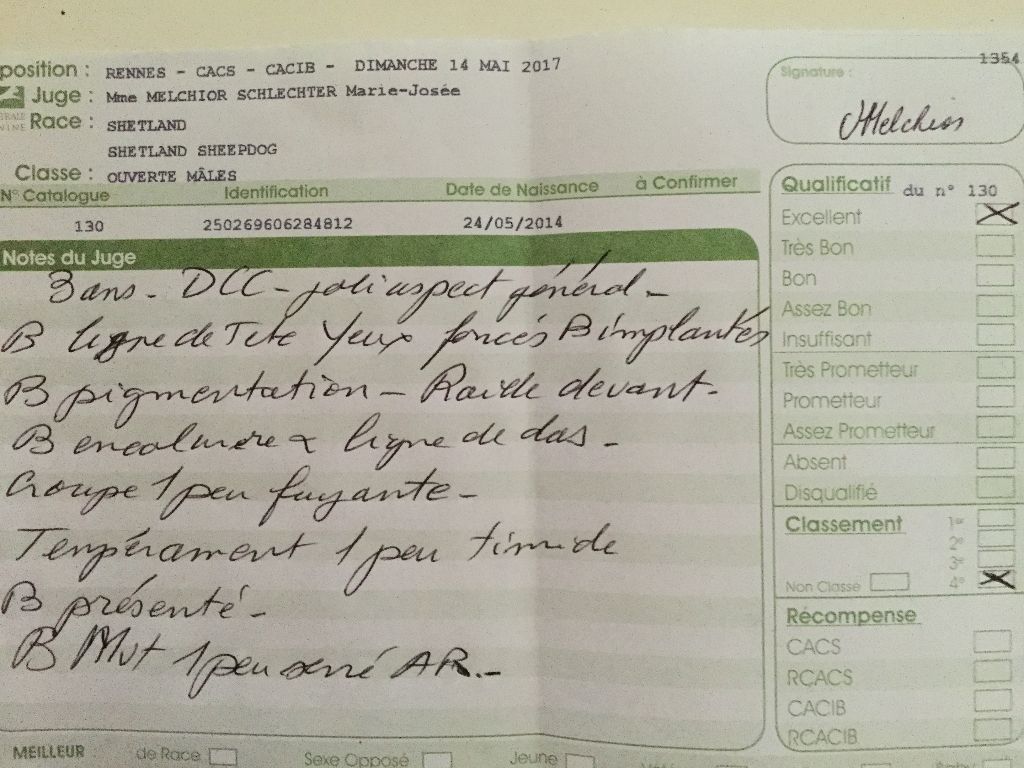 position : RENNES - CACS - CACIB - DIMANCHE 14 MAI 2017
1354
Juge : Mme MELCHIOR SCHLECHTER Marie-Josée
Signature :
Melchior
Race : SHETLAND
SHETLAND SHEEPDOG
Classe : OUVERTE MÂLES
N° Catalogue Identification Date de Naissance à Confirmer
130 250269606284812 24/05/2014
Notes du Juge
3 ans - DCC - joli aspect général -
B ligne de Tete Yeux foncés B implantés
B pigmentation - Raide devant -
B encolure & ligne de dos -
Croupe 1 peu fuyante -
Tempérament 1 peu timide
B présenté -
B Mvt 1 peu serré AR. -
Qualificatif du n° 130
Excellent
Très Bon
Bon
Assez Bon
Insuffisant
Très Prometteur
Prometteur
Assez Prometteur
Absent
Disqualifié
Classement 1er
2e
3e
Non Classé 4e
Récompense
CACS
RCACS
CACIB
RCACIB
MEILLEUR : de Race Sexe Opposé Jeune